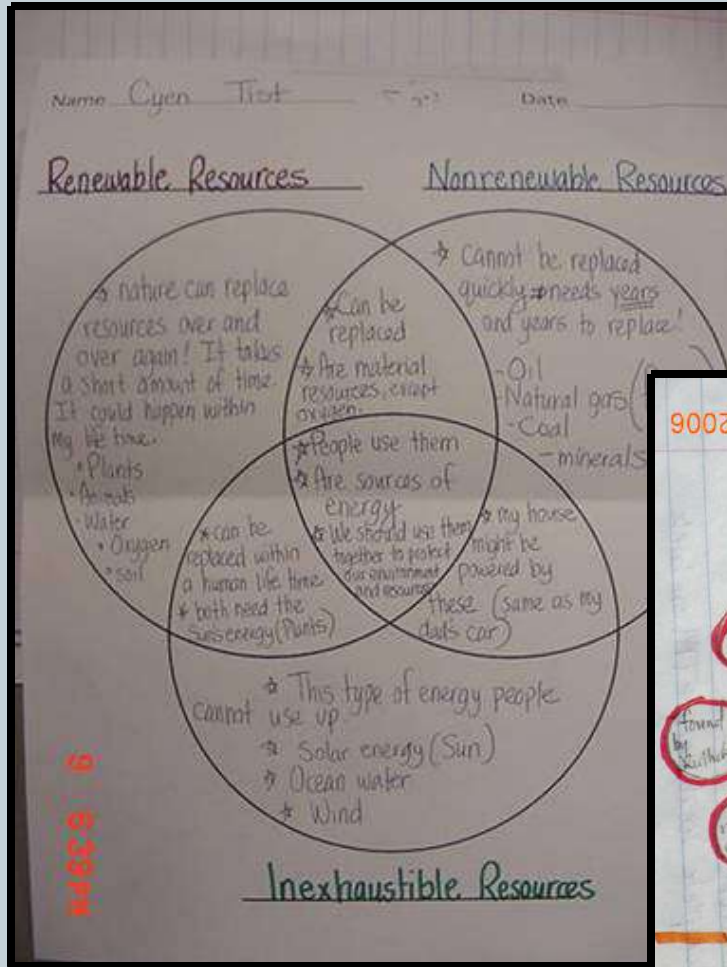 Name Cyen Trot Date
Renewable Resources Nonrenewable Resources
nature can replace
resources over and
over again! It takes
a short amount of time.
It could happen within
my life time.
Plants
Animals
Water
Oxygen
soil
Can be
replaced
Are material
resources, except
oxygen.
Cannot be replaced
quickly needs years
and years to replace!
-Oil
-Natural gas
-Coal
-minerals
People use them
Are sources of
energy
We should use them
together to protect
our environment
and resources
can be
replaced within
a human life time
both need the
sun's energy (Plants)
my house
might be
powered by
these (same as my
dad's car)
This type of energy people
cannot use up
Solar energy (Sun)
Ocean water
Wind
Inexhaustible Resources
2006
found
by